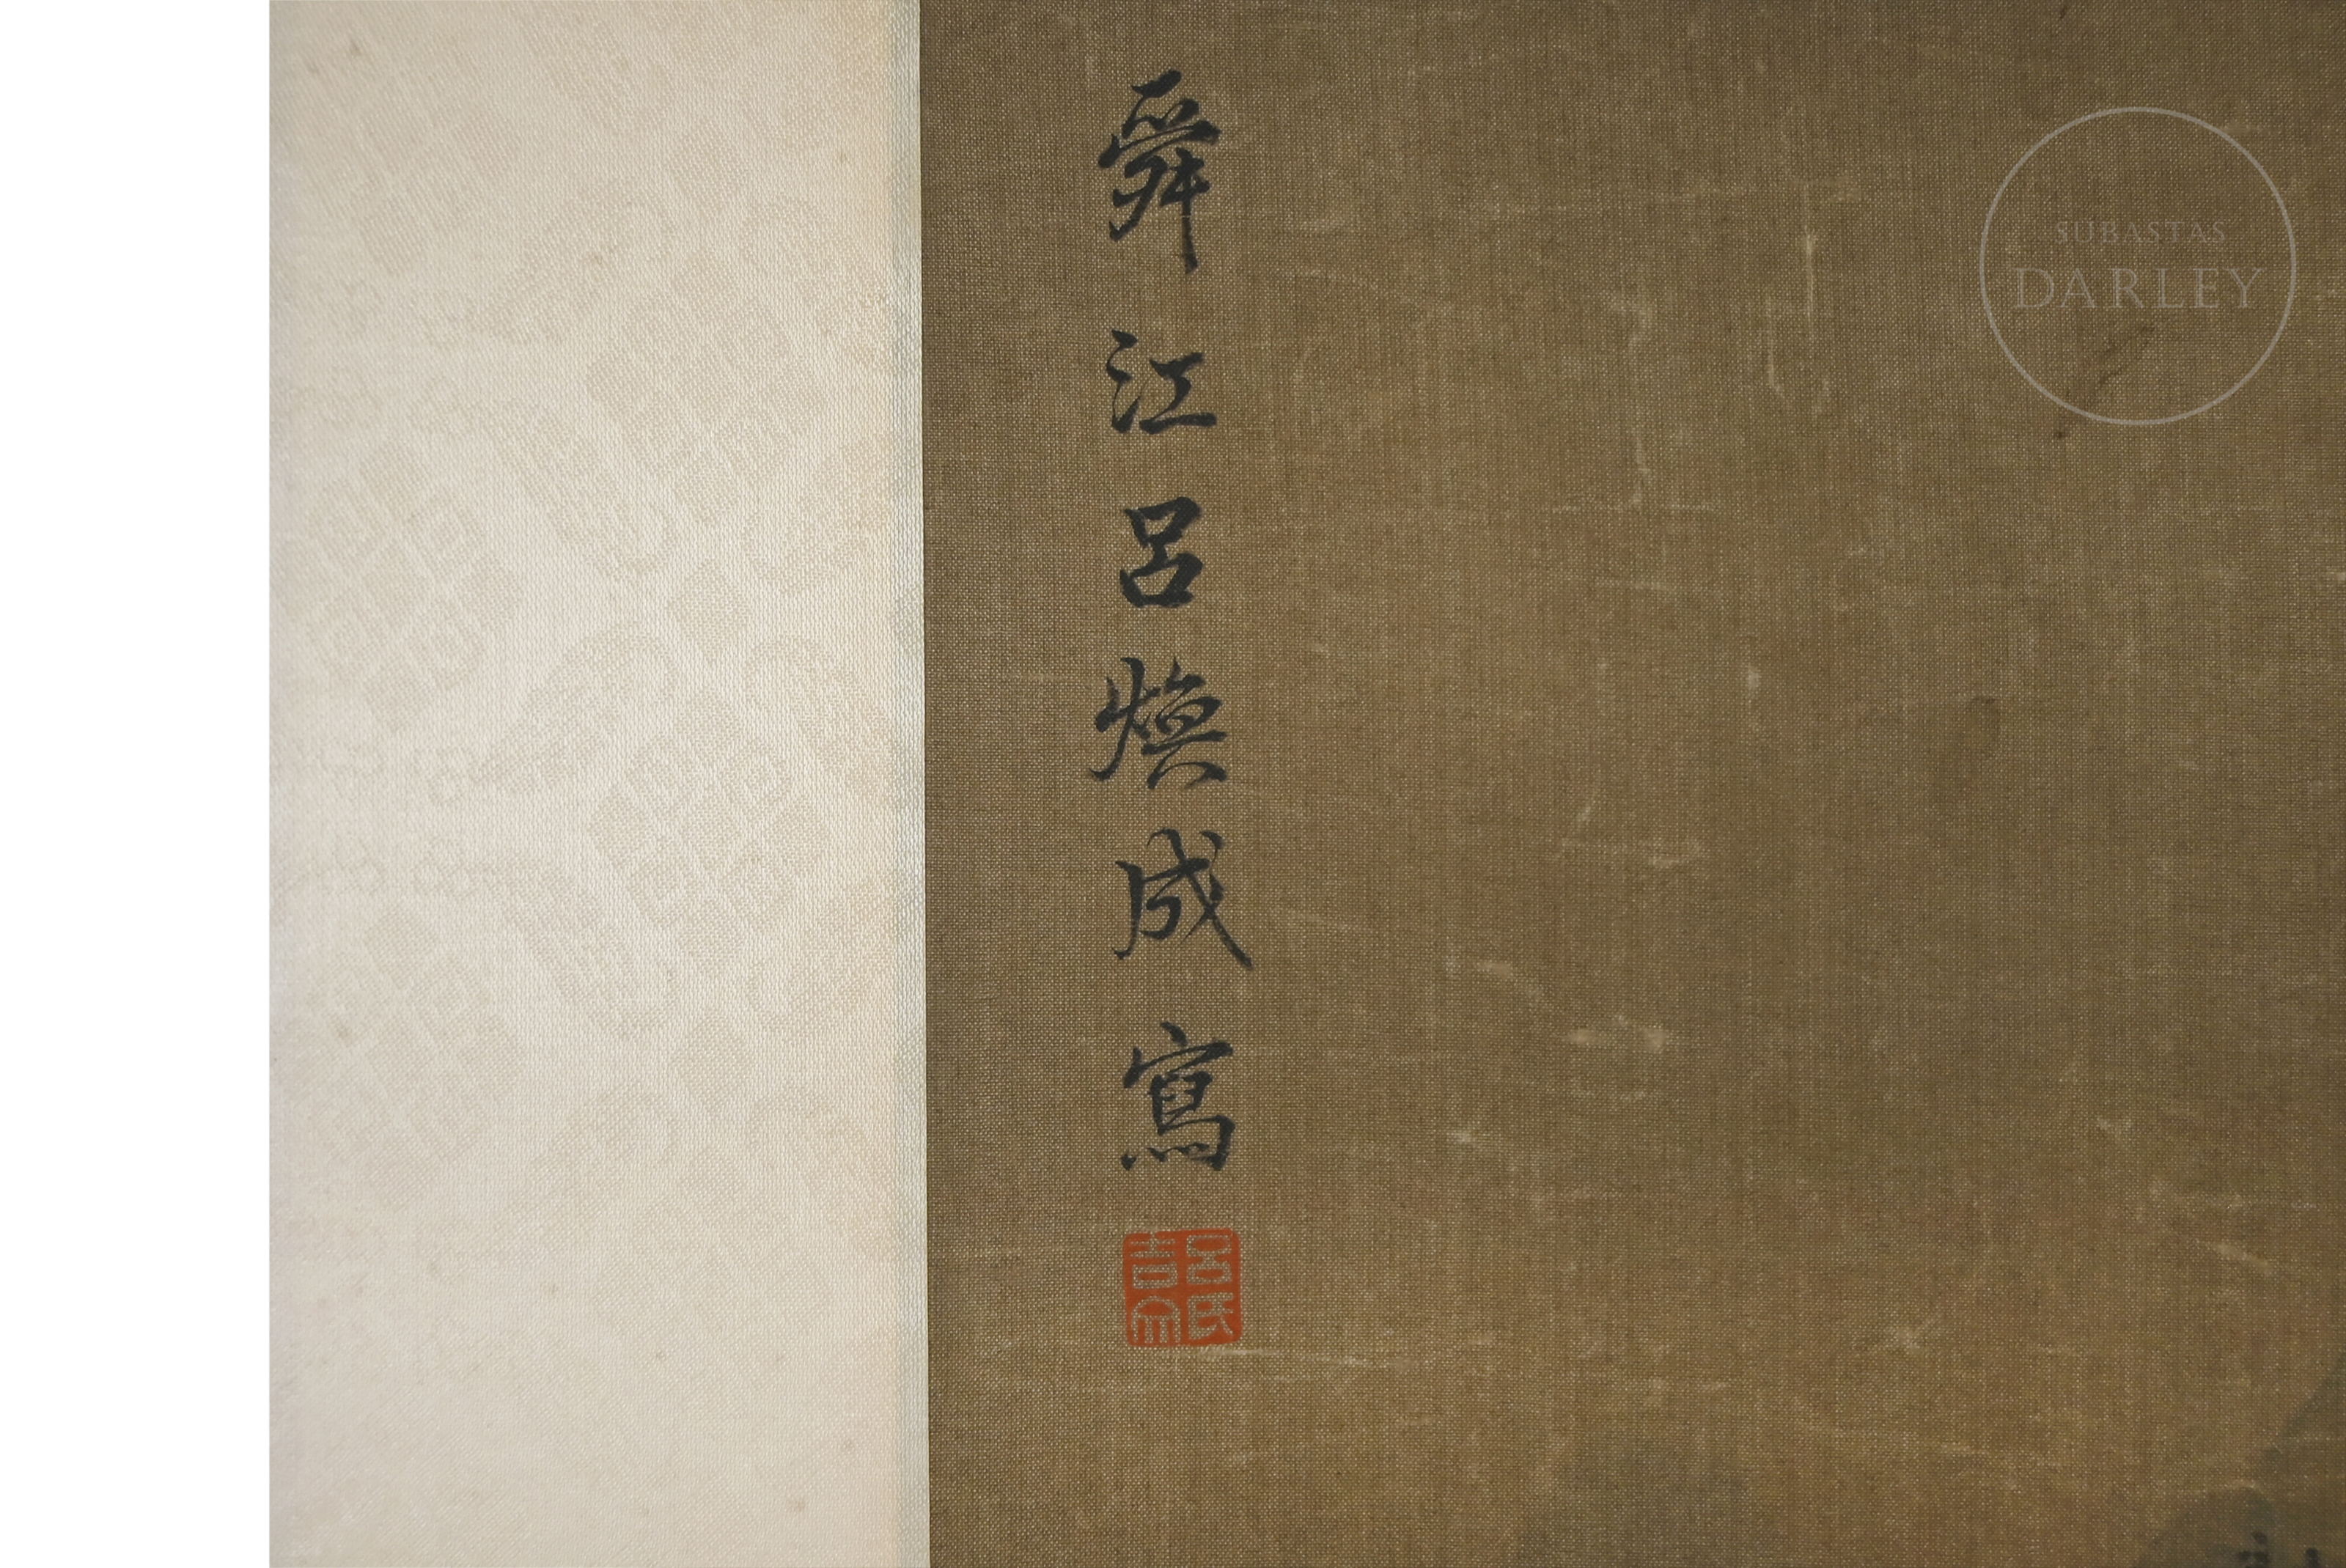 舜江呂煥成寫
呂氏吉文
SUBASTAS
DARLEY